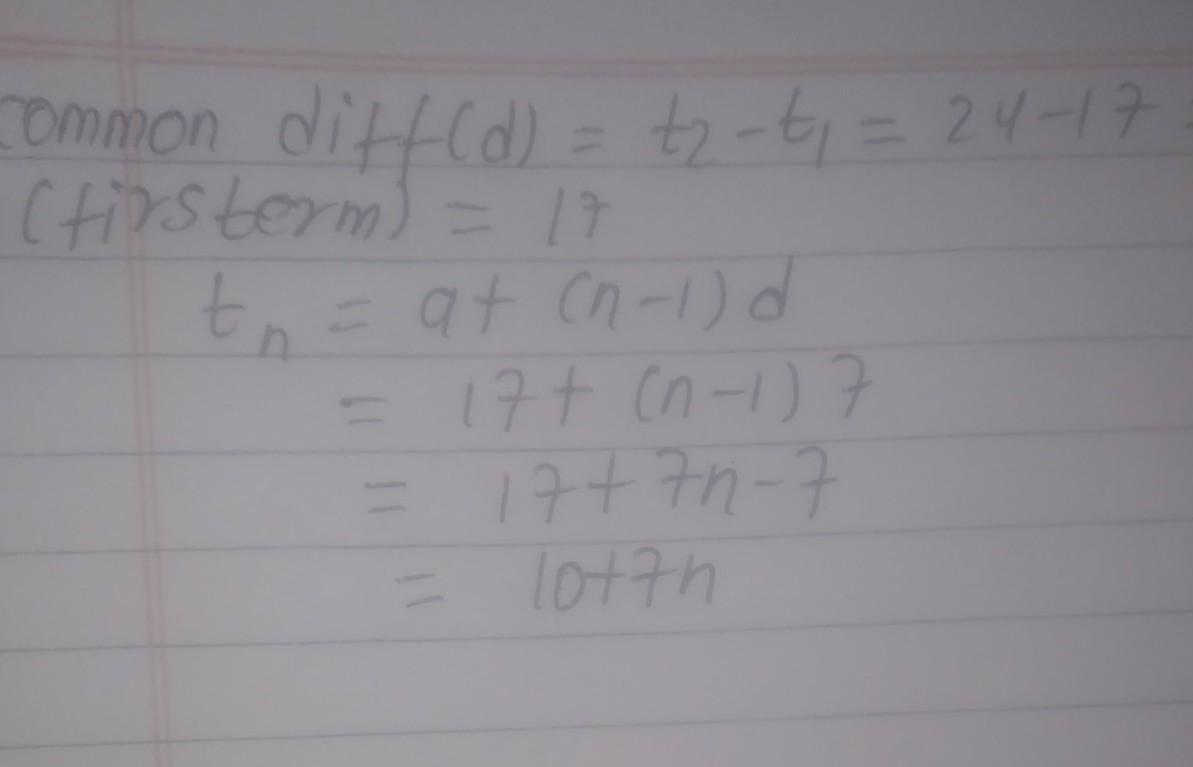 common diff(d) = t₂ - t₁ = 24-17
(firsterm) = 17
tₙ = a + (n-1)d
= 17 + (n-1) 7
= 17 + 7n - 7
= 10+7n